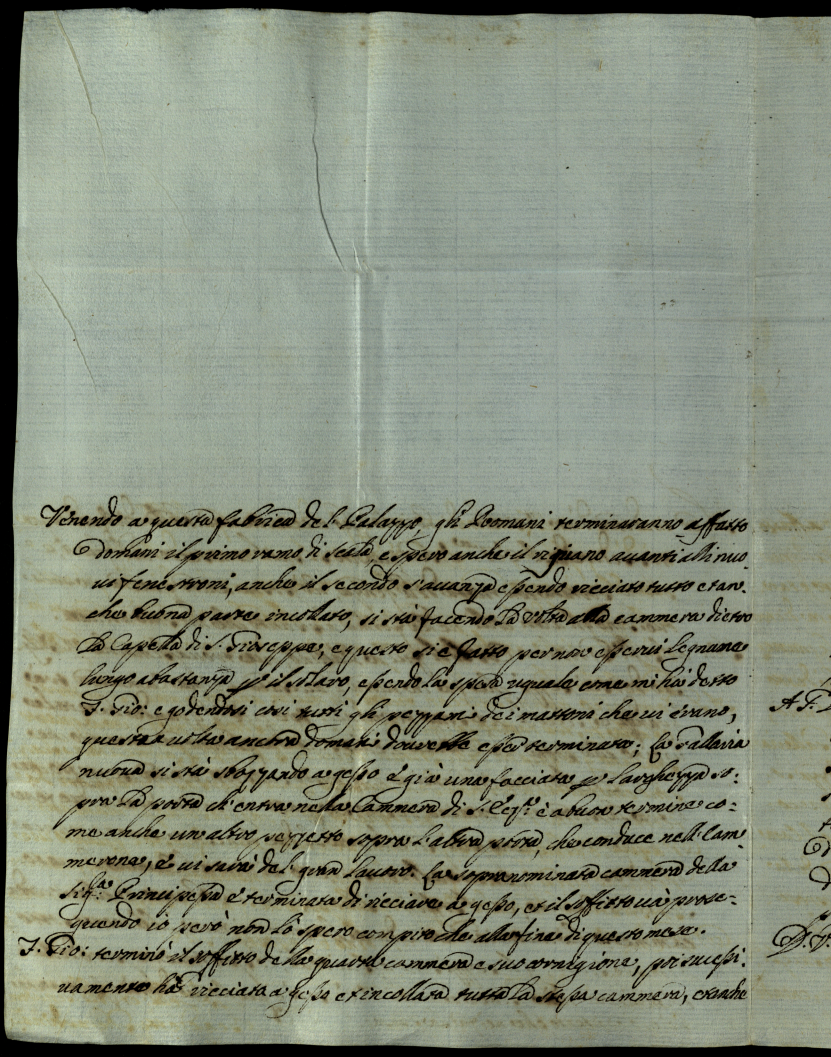 Venendo a questa fabrica del Palazzo, gli Romani terminaranno affatto
domani il primo ramo di scala e spero anche il ripiano avanti alli nuo-
vi fenestroni, anche il secondo s'avanza essendo ricciato tutto et an-
che buona parte incollato, si stà facendo la volta alla cammera dietro
la Capella di S. Gioseppe, e questo si è fatto per non esservi legname
lungo abastanza p il solaro, essendo la spesa uguale come mi hà detto
F. Gio: e godendosi così tutti gli pezzami dei mattoni che vi érano,
questa volta anchra domani dovrebbe esser terminata; La Gallaria
nuova si stà sbozzando a gesso è già una facciata p larghezza so:
pra la porta ch'entra nella Cammera di S. Ecz.ª è a buon termine co-
me anche un altro pezzetto sopra l'altra porta, che conduce nell Cam-
merone, è vi sarà del gran lavoro. La sopranominata cammera della
Sig.ra Principessa è terminata di ricciare a gesso, et il soffitto và prose-
guendo io però non lo spero compito che alla fine di questo mese.
F. Gio: terminò il soffitto della quarta cammera e suo cornigione, poi sucessi-
vamente hà ricciata a gesso et incollata tutta la stessa cammera, et anche
A F.
D.